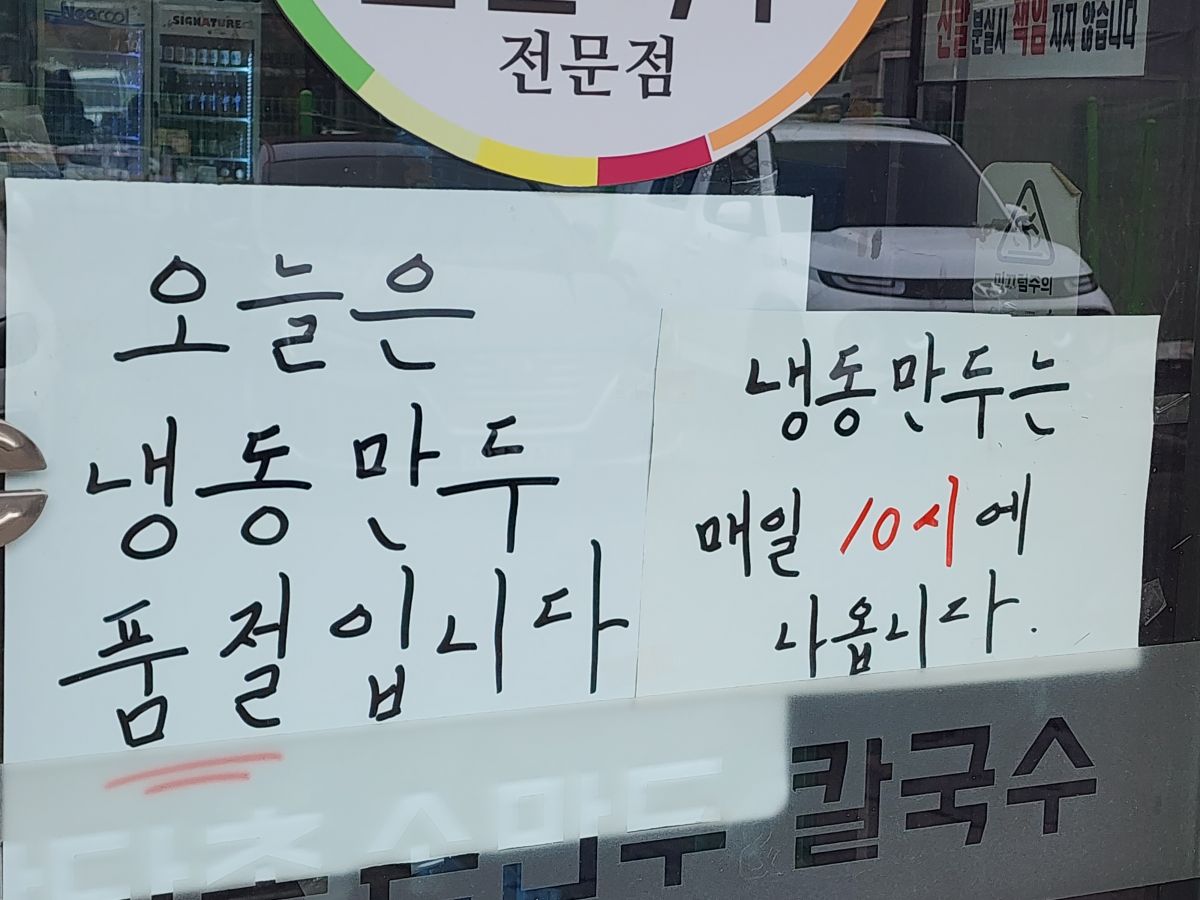 SIGNATURE
전문점
신발 분실시 책임 지지 않습니다
오늘은
냉동만두
품절입니다
냉동만두는
매일 10시에
나옵니다.
미끄럼주의
손만두 칼국수